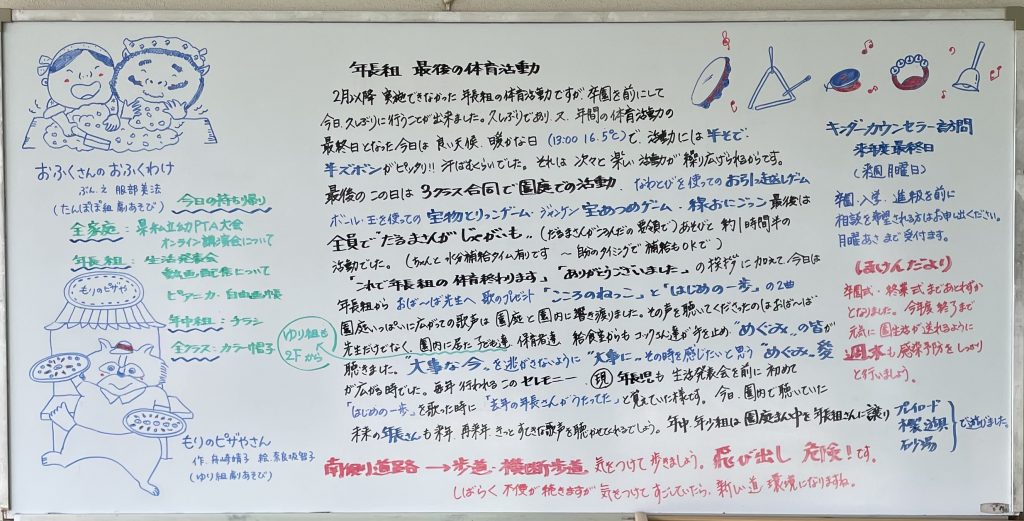 おふくさんのおふくわけ
ぶん・え 服部美法
(たんぽぽ組 劇あそび)
今日の持ち帰り
全家庭:県私立幼PTA大会
オンライン講演会について
年長組:生活発表会
動画配信について
ピアニカ・自由画帳
年中組:チラシ
全クラス:カラー帽子
ゆり組も
2Fから
もりのピザや
もりのピザやさん
作 舟崎靖子 絵 奈良坂智子
(ゆり組 劇あそび)
年長組 最後の体育活動
2月以降 実施できなかった年長組の体育活動ですが、卒園を前にして
今日、久しぶりに行うことが出来ました。久しぶりであり、又、年間の体育活動の
最終日となった今日は良い天候、暖かな日(13:00 16.5℃)で、活動には半そで、
半ズボンがピッタリ!!汗ばむくらいでした。それは 次々と楽しい活動が繰り広げられるからです。
最後のこの日は3クラス合同で園庭での活動、なわとびを使ってのお引っ越しゲーム
ボール・玉を使っての宝物とりっこゲーム・ジャンケン宝あつめゲーム・様おにごっこ 最後は
全員でだるまさんがじゃがいも〟(だるまさんがころんだの要領で)あそびと 約1時間半の
活動でした。(ちゃんと水分補給タイム有りです ～自分のタイミングで補給もOKで)
「これで年長組の体育終わります」「ありがとうございました」の挨拶に加えて、今日は
年長組から おば～ば先生へ 歌のプレゼント「こころのねっこ」と「はじめの一歩」の2曲
園庭いっぱいに広がっての歌声は園庭と園内に響き渡りました。その声を聴いてくださったのはおば～ば
先生だけでなく、園内に居た子ども達、保育者達、給食室からもコックさん達が手を止め〝めぐみ〟の皆が
聴きました。〝大事な今〟を逃がさないように〝大事に〟その時を感じたいと思う〝めぐみ〟愛
が広がる時でした。毎年行われるこのセレモニー、現年長児も生活発表会を前に初めて
「はじめの一歩」を歌った時に「去年の年長さんがうたってた」と覚えていた様です。今日、園内で聴いていた
未来の年長さんも来年、再来年、きっとすてきな歌声を聴かせてくれるでしょう。
年中 年少組は園庭まん中を年長組さんに譲り プレイロード
木製遊具
砂場
で遊びました。
南側道路→歩道・横断歩道 気をつけて歩きましょう。飛び出し 危険!です。
しばらく 不便が続きますが 気をつけてすごしていたら、新しい道環境になりますね。
キンダーカウンセラー訪問
来年度最終日
(来週月曜日)
卒園・入学・進級を前に
相談を希望される方はお申出ください。
月曜あさまで受付ます。
ほけんだより
卒園式・終業式まであとわずか
となりました。今年度終了まで
元気に園生活が送れるように
週末も感染予防をしっかり
と行いましょう。